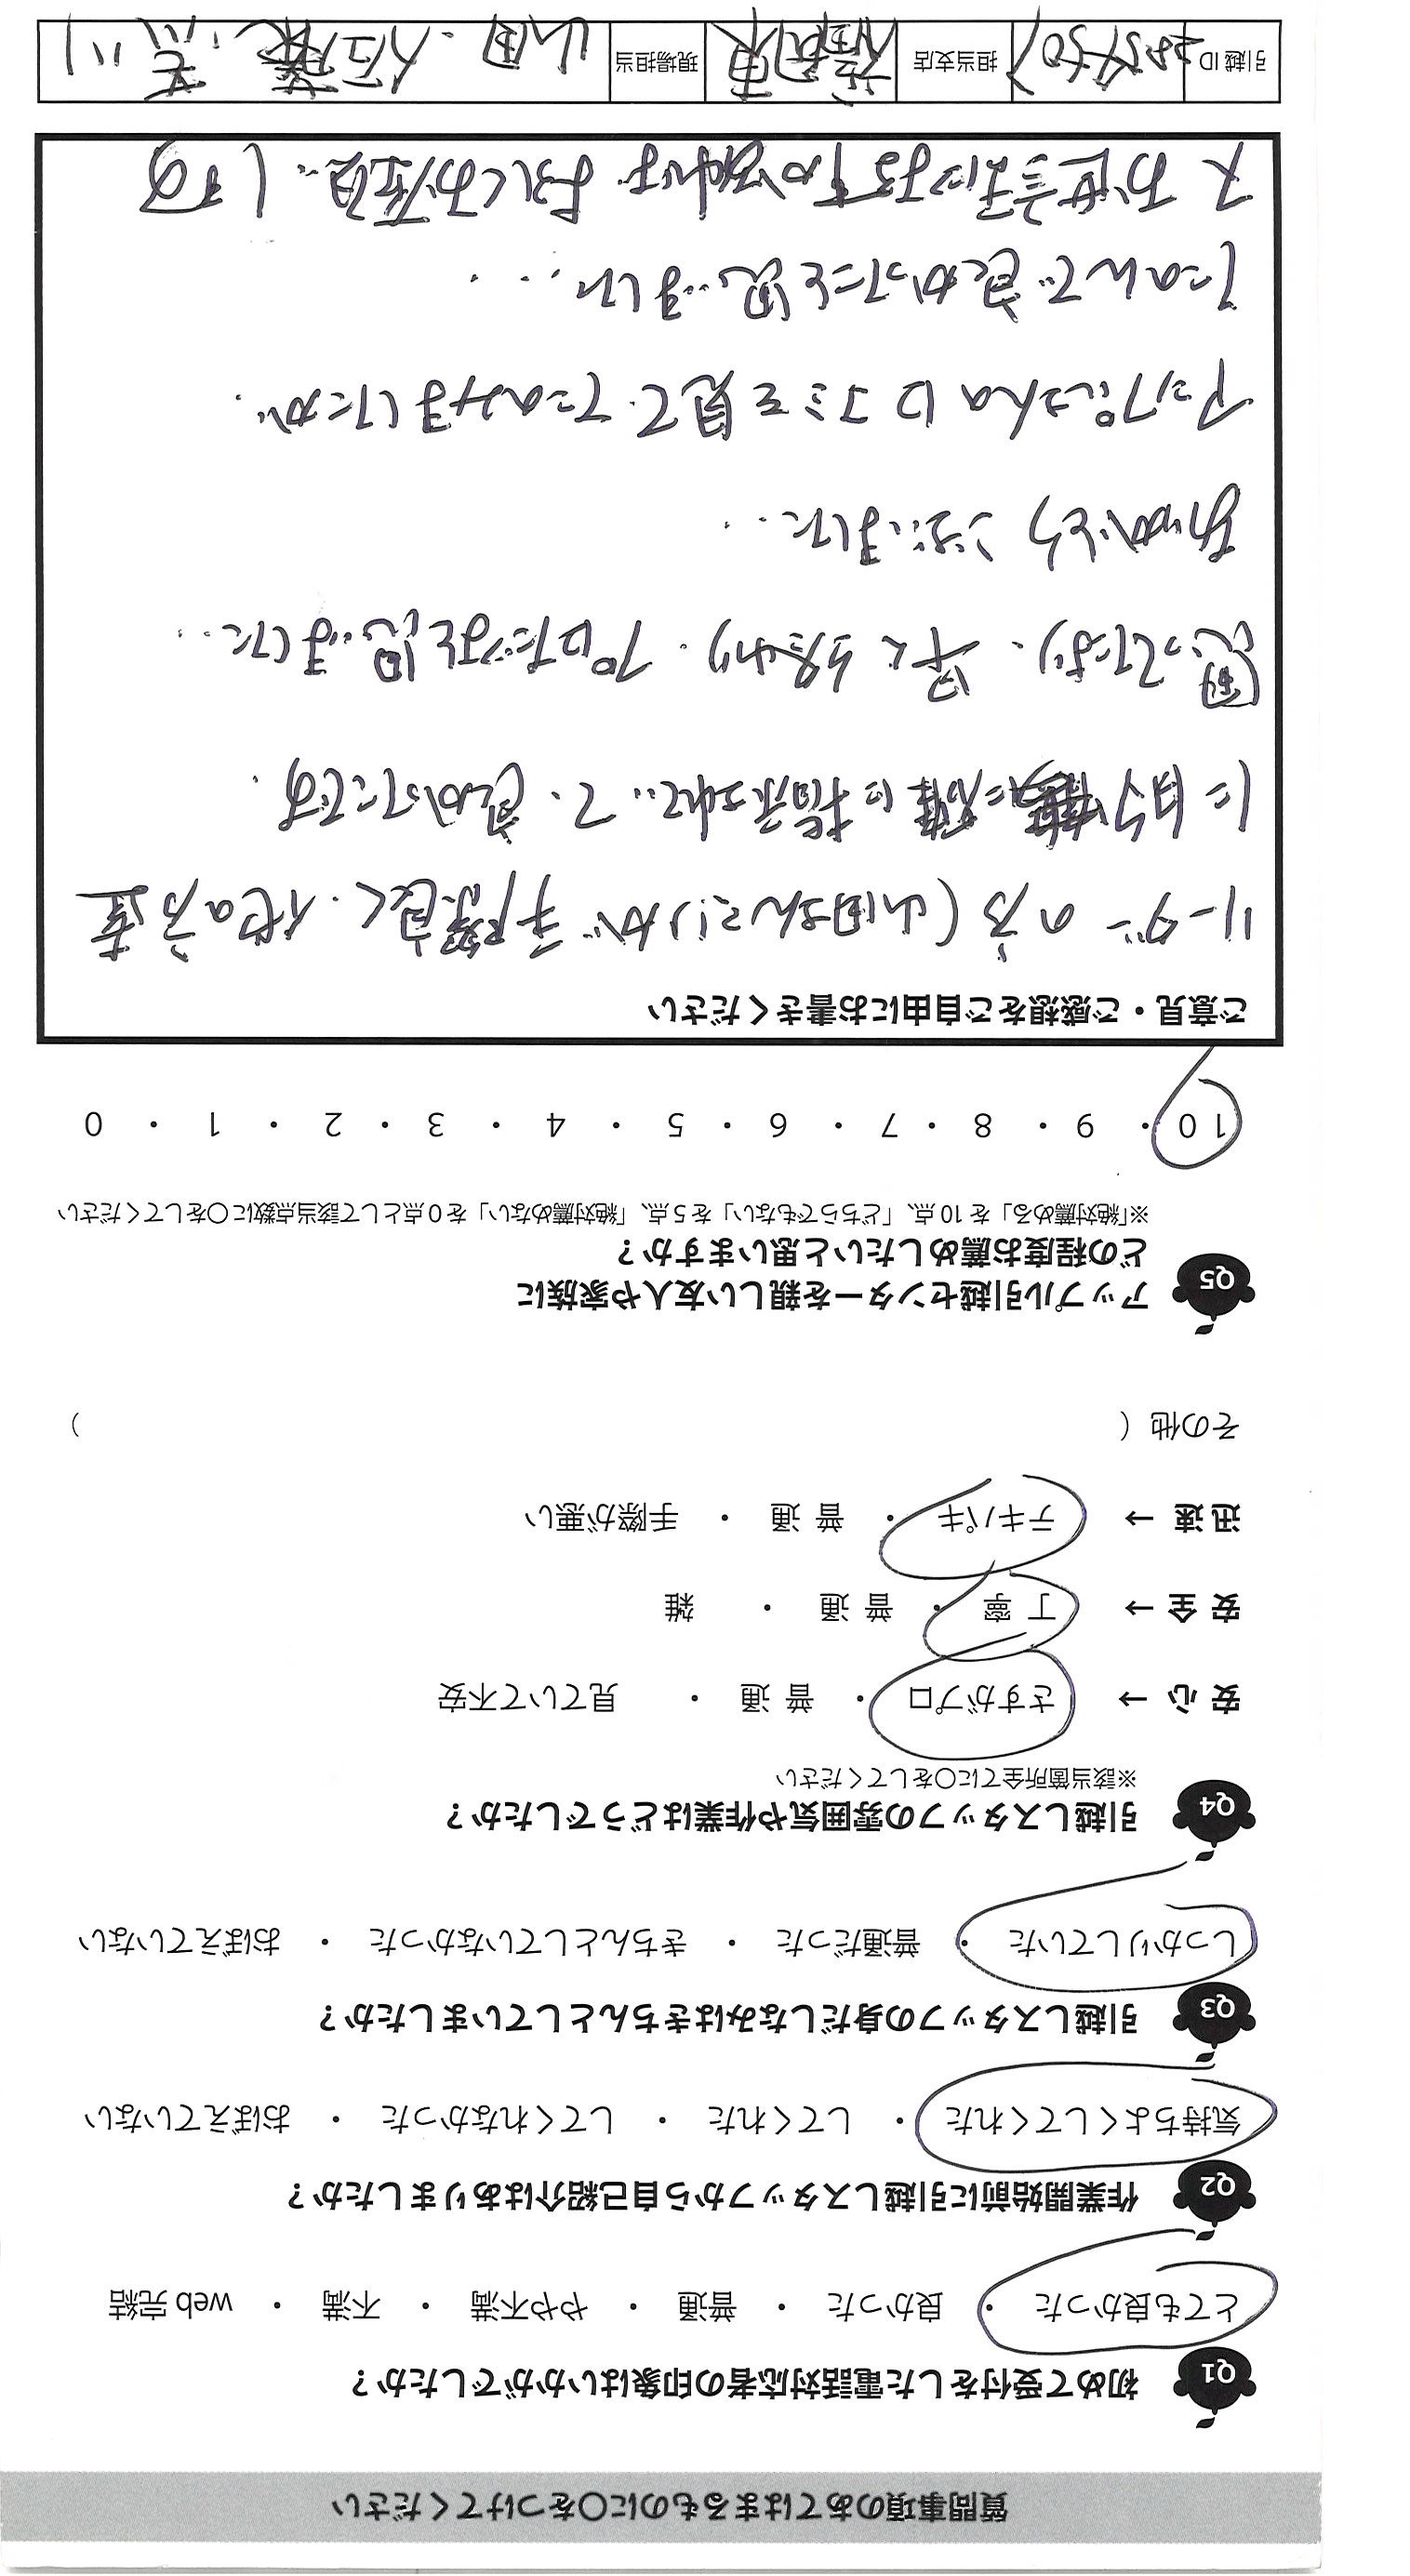 質問事項のあてはまるものに〇をつけてください
Q1 初めて受付をした電話対応者の印象はいかがでしたか？
とても良かった ・ 良かった ・ 普通 ・ やや不満 ・ 不満 ・ web 完結
Q2 作業開始前に引越しスタッフから自己紹介はありましたか？
気持ちよくしてくれた ・ してくれた ・ してくれなかった ・ おぼえていない
Q3 引越しスタッフの身だしなみはきちんとしていましたか？
しっかりしていた ・ 普通だった ・ きちんとしていなかった ・ おぼえていない
Q4 引越しスタッフの雰囲気や作業はどうでしたか？
※該当箇所全てに〇をしてください
安 心 → さすがプロ ・ 普 通 ・ 見ていて不安
安 全 → 丁 寧 ・ 普 通 ・ 雑
迅 速 → テキパキ ・ 普 通 ・ 手際が悪い
その他（ ）
Q5 アップル引越センターを親しい友人や家族に
どの程度お薦めしたいと思いますか？
※「絶対薦める」を 10 点、「どちらでもない」を 5 点、「絶対薦めない」を 0 点として該当点数に〇をしてください
10 ・ 9 ・ 8 ・ 7 ・ 6 ・ 5 ・ 4 ・ 3 ・ 2 ・ 1 ・ 0
ご意見・ご感想をご自由にお書きください
リーダーの方(山田さん)が手際良く、他の方達
に的確に指示されていて、良かったです。
思ってたより、早く終わり、プロだなと思いました。
ありがとうございました。
アップルさんの口コミを見てたのみましたが、
たのんで良かったと思いました...
又お世話になる事があればよろしくお願いします
引越 ID 担当支店 福岡東 現場担当 山田、佐藤、